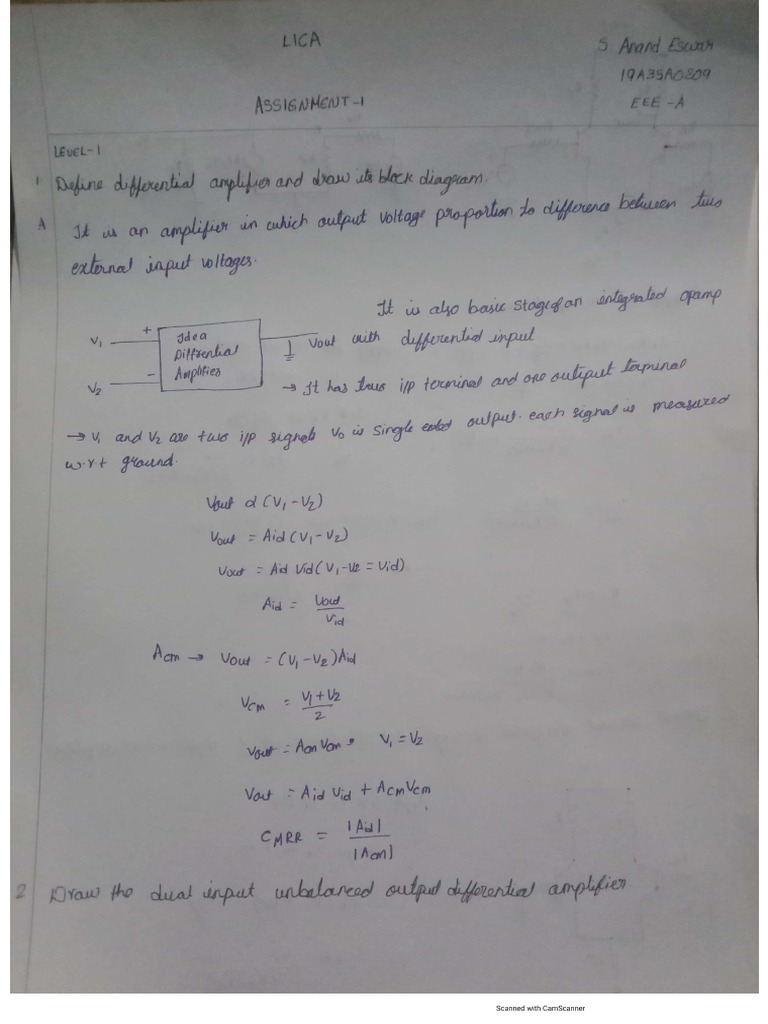 LICA
S Anand Eswar
19A35A0209
ASSIGNMENT-1
EEE -A
LEVEL-1
1 Define differential amplifier and draw its block diagram.
A It is an amplifier in which output voltage proportion to difference between two
external input voltages.
It is also basic stage of an integrated opamp
V1 +
Idea
Diffrential
Amplifies
V2 -
Vout with differential input
→ It has two i/p terminal and one output terminal
→ V1 and V2 are two i/p signals V0 is single output. each signal is measured
w.r.t ground.
Vout α (V1 - V2)
Vout = Aid (V1 - V2)
Vout = Aid Vid (V1 - V2 = Vid)
Aid = Vout / Vid
Acm → Vout = (V1 - V2) Aid
Vcm = V1 + V2 / 2
Vout = Acm Vcm V1 = V2
Vout = Aid Vid + Acm Vcm
CMRR = |Aid| / |Acm|
2 Draw the dual input unbalanced output differential amplifier
Scanned with CamScanner